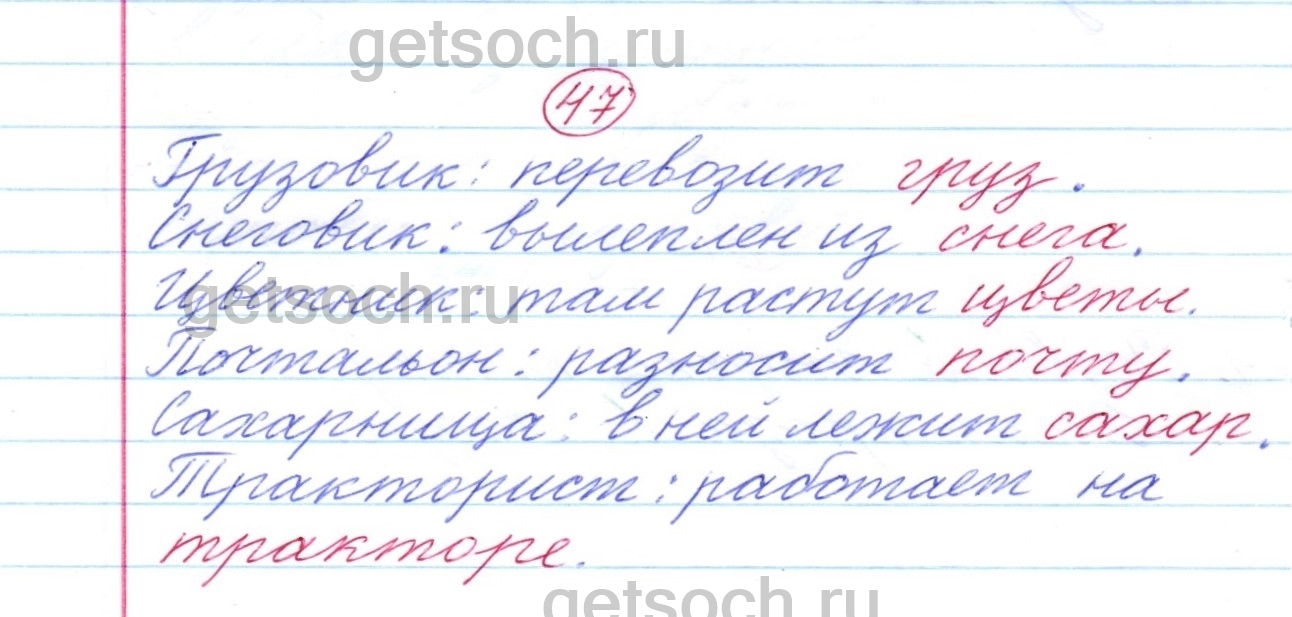 getsoch.ru
47
Грузовик: перевозит груз.
Снеговик: вылеплен из снега.
Цветник: там растут цветы.
getsoch.ru
Почтальон: разносит почту.
Сахарница: в ней лежит сахар.
Тракторист: работает на
тракторе.
getsoch.ru